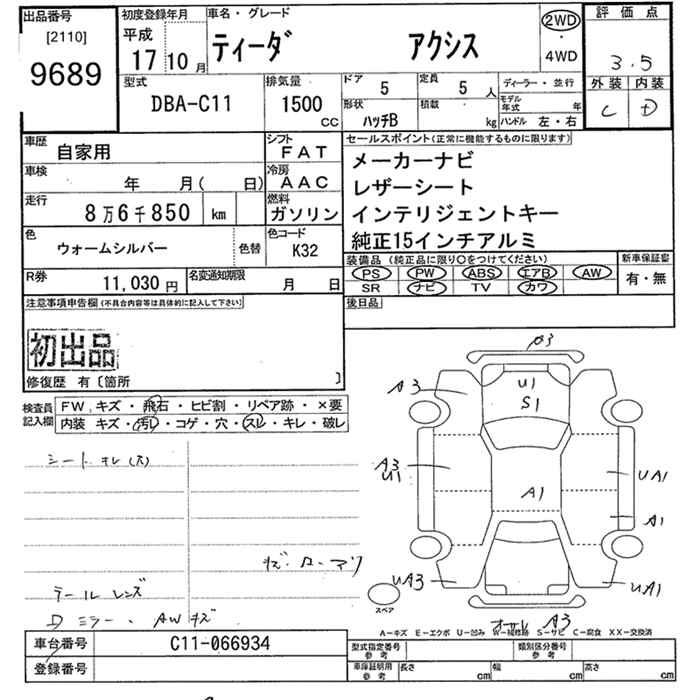 出品番号
[2110]
9689
初度登録年月
平成
17 10 月
車名・グレード
ティーダ アクシス
2WD
・
4WD
評価点
3.5
外装 内装
C D
型式
DBA-C11
排気量
1500 CC
ドア
5
形状
ハッチB
定員
5 人
積載
kg
ディーラー・並行
モデル年式 年
ハンドル 左・右
車歴
自家用
シフト
FAT
車検
年 月( 日)
冷房
AAC
走行
8万6千850 km
燃料
ガソリン
色
ウォームシルバー
色替
色コード
K32
R券
11,030 円
名変通知期限
月 日
セールスポイント(正常に機能するものに限ります)
メーカーナビ
レザーシート
インテリジェントキー
純正15インチアルミ
装備品 (純正品に限り○をつけてください)
PS PW ABS エアB AW
SR ナビ TV カワ
新車保証書
有・無
後日品
注意事項申告欄(不具合内容等は具体的に記入して下さい)
初出品
修復歴 有〔箇所 〕
検査員記入欄
FW、キズ・飛石・ヒビ割・リペア跡・×要
内装 キズ・汚れ・コゲ・穴・スレ・キレ・破レ
シート キレ(穴)
テールレンズ
Dミラー、AWキズ
A3
U1
S1
A3
A3
U1
A1
UA1
A1
UA3
UA1
A3
スペア
A-キズ E-エクボ U-凹み W-補修跡 S-サビ C-腐食 XX-交換済
車台番号
C11-066934
登録番号
型式指定番号
参考
類別区分番号
参考
車庫証明用
参考
長さ cm
幅 cm
高さ cm